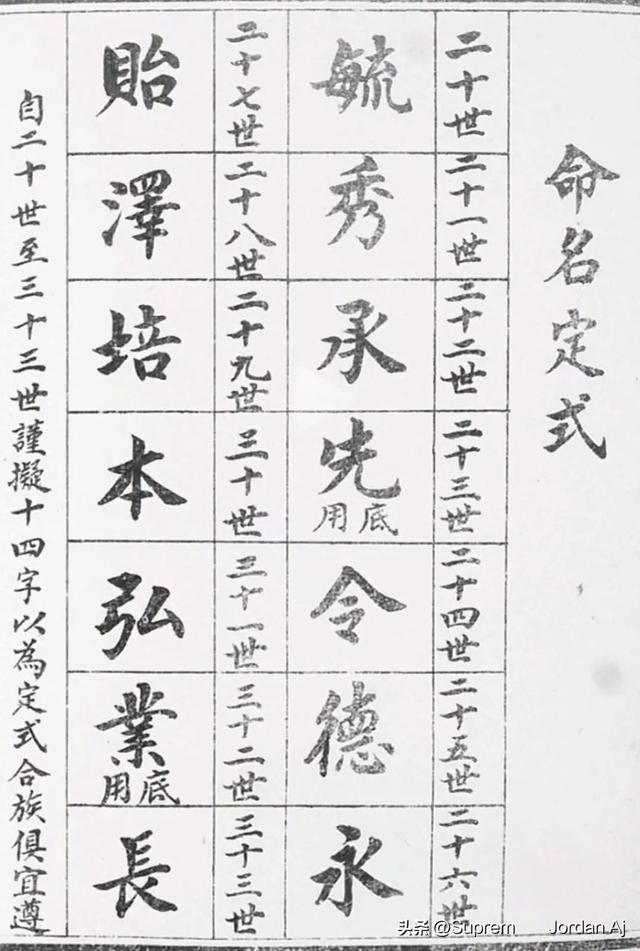 命名定式
二十世
毓
二十一世
秀
二十二世
承
二十三世
先
底用
二十四世
令
二十五世
德
二十六世
永
二十七世
貽
二十八世
澤
二十九世
培
三十世
本
三十一世
弘
三十二世
業
底用
三十三世
長
自二十世至三十三世謹擬十四字以為定式合族俱宜遵
头条 @Suprem Jordan Aj